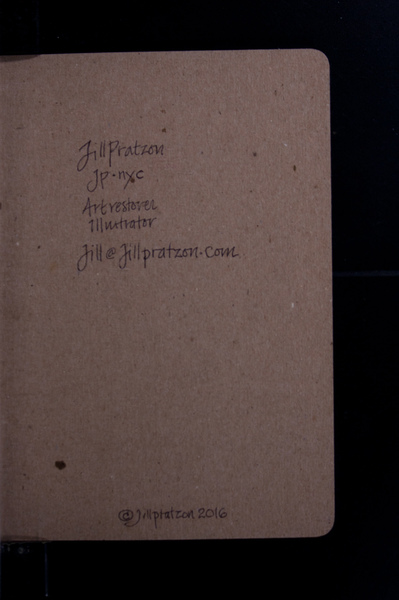 Jill Pratzon
JP·nyc
Art restorer
Illustrator
Jill@Jillpratzon.com
@Jillpratzon 2016